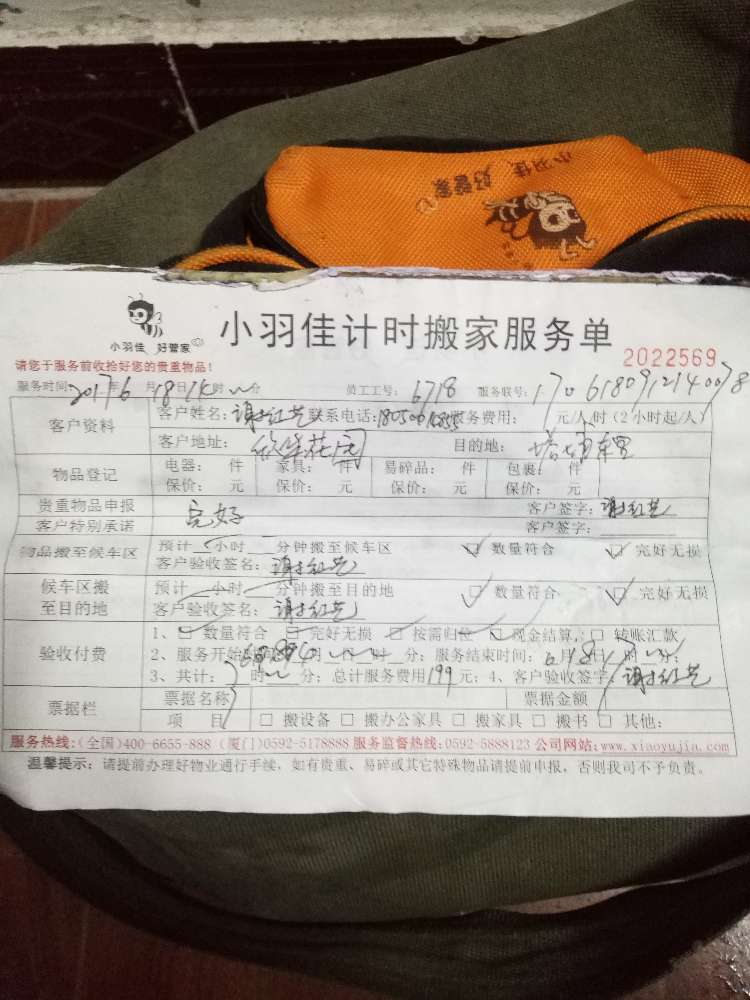 小羽佳 好管家
小羽佳 好管家
小羽佳计时搬家服务单
2022569
请您于服务前收拾好您的贵重物品!
服务时间: 2017年6月18日 时 分 员工工号: 6718 服务联号: 1706180912140078
客户资料 客户姓名: 谢红艺 联系电话: 服务费用: 元/人/时(2小时起/人)
客户地址: 花园 目的地: 塔埔
物品登记 电器: 件 家具: 件 易碎品: 件 包裹: 件
保价: 元 保价: 元 保价: 元 保价: 元
贵重物品申报 完好 客户签字: 谢红艺
客户特别承诺 客户签字:
物品搬至候车区 预计 小时 分钟搬至候车区 ☑ 数量符合 ☑ 完好无损
客户验收签名: 谢红艺
候车区搬至目的地 预计 小时 分钟搬至目的地 ☑ 数量符合 ☑ 完好无损
客户验收签名: 谢红艺
验收付费 1、☑ 数量符合 ☑ 完好无损 ☑ 按需归位 ☑ 现金结算 □ 转账汇款
2、服务开始时间: 月 日 时 分; 服务结束时间: 6月18日 时 分;
3、共计: 时 分; 总计服务费用199元; 4、客户验收签字: 谢红艺
票据栏 票据名称 票据金额
项 目 □ 搬设备 □ 搬办公家具 □ 搬家具 □ 搬书 □ 其他:
服务热线:(全国)400-6655-888 (厦门)0592-5178888 服务监督热线:0592-5888123 公司网站:www.xiaoyujia.com
温馨提示: 请提前办理好物业通行手续, 如有贵重、易碎或其它特殊物品请提前申报, 否则我司不予负责。